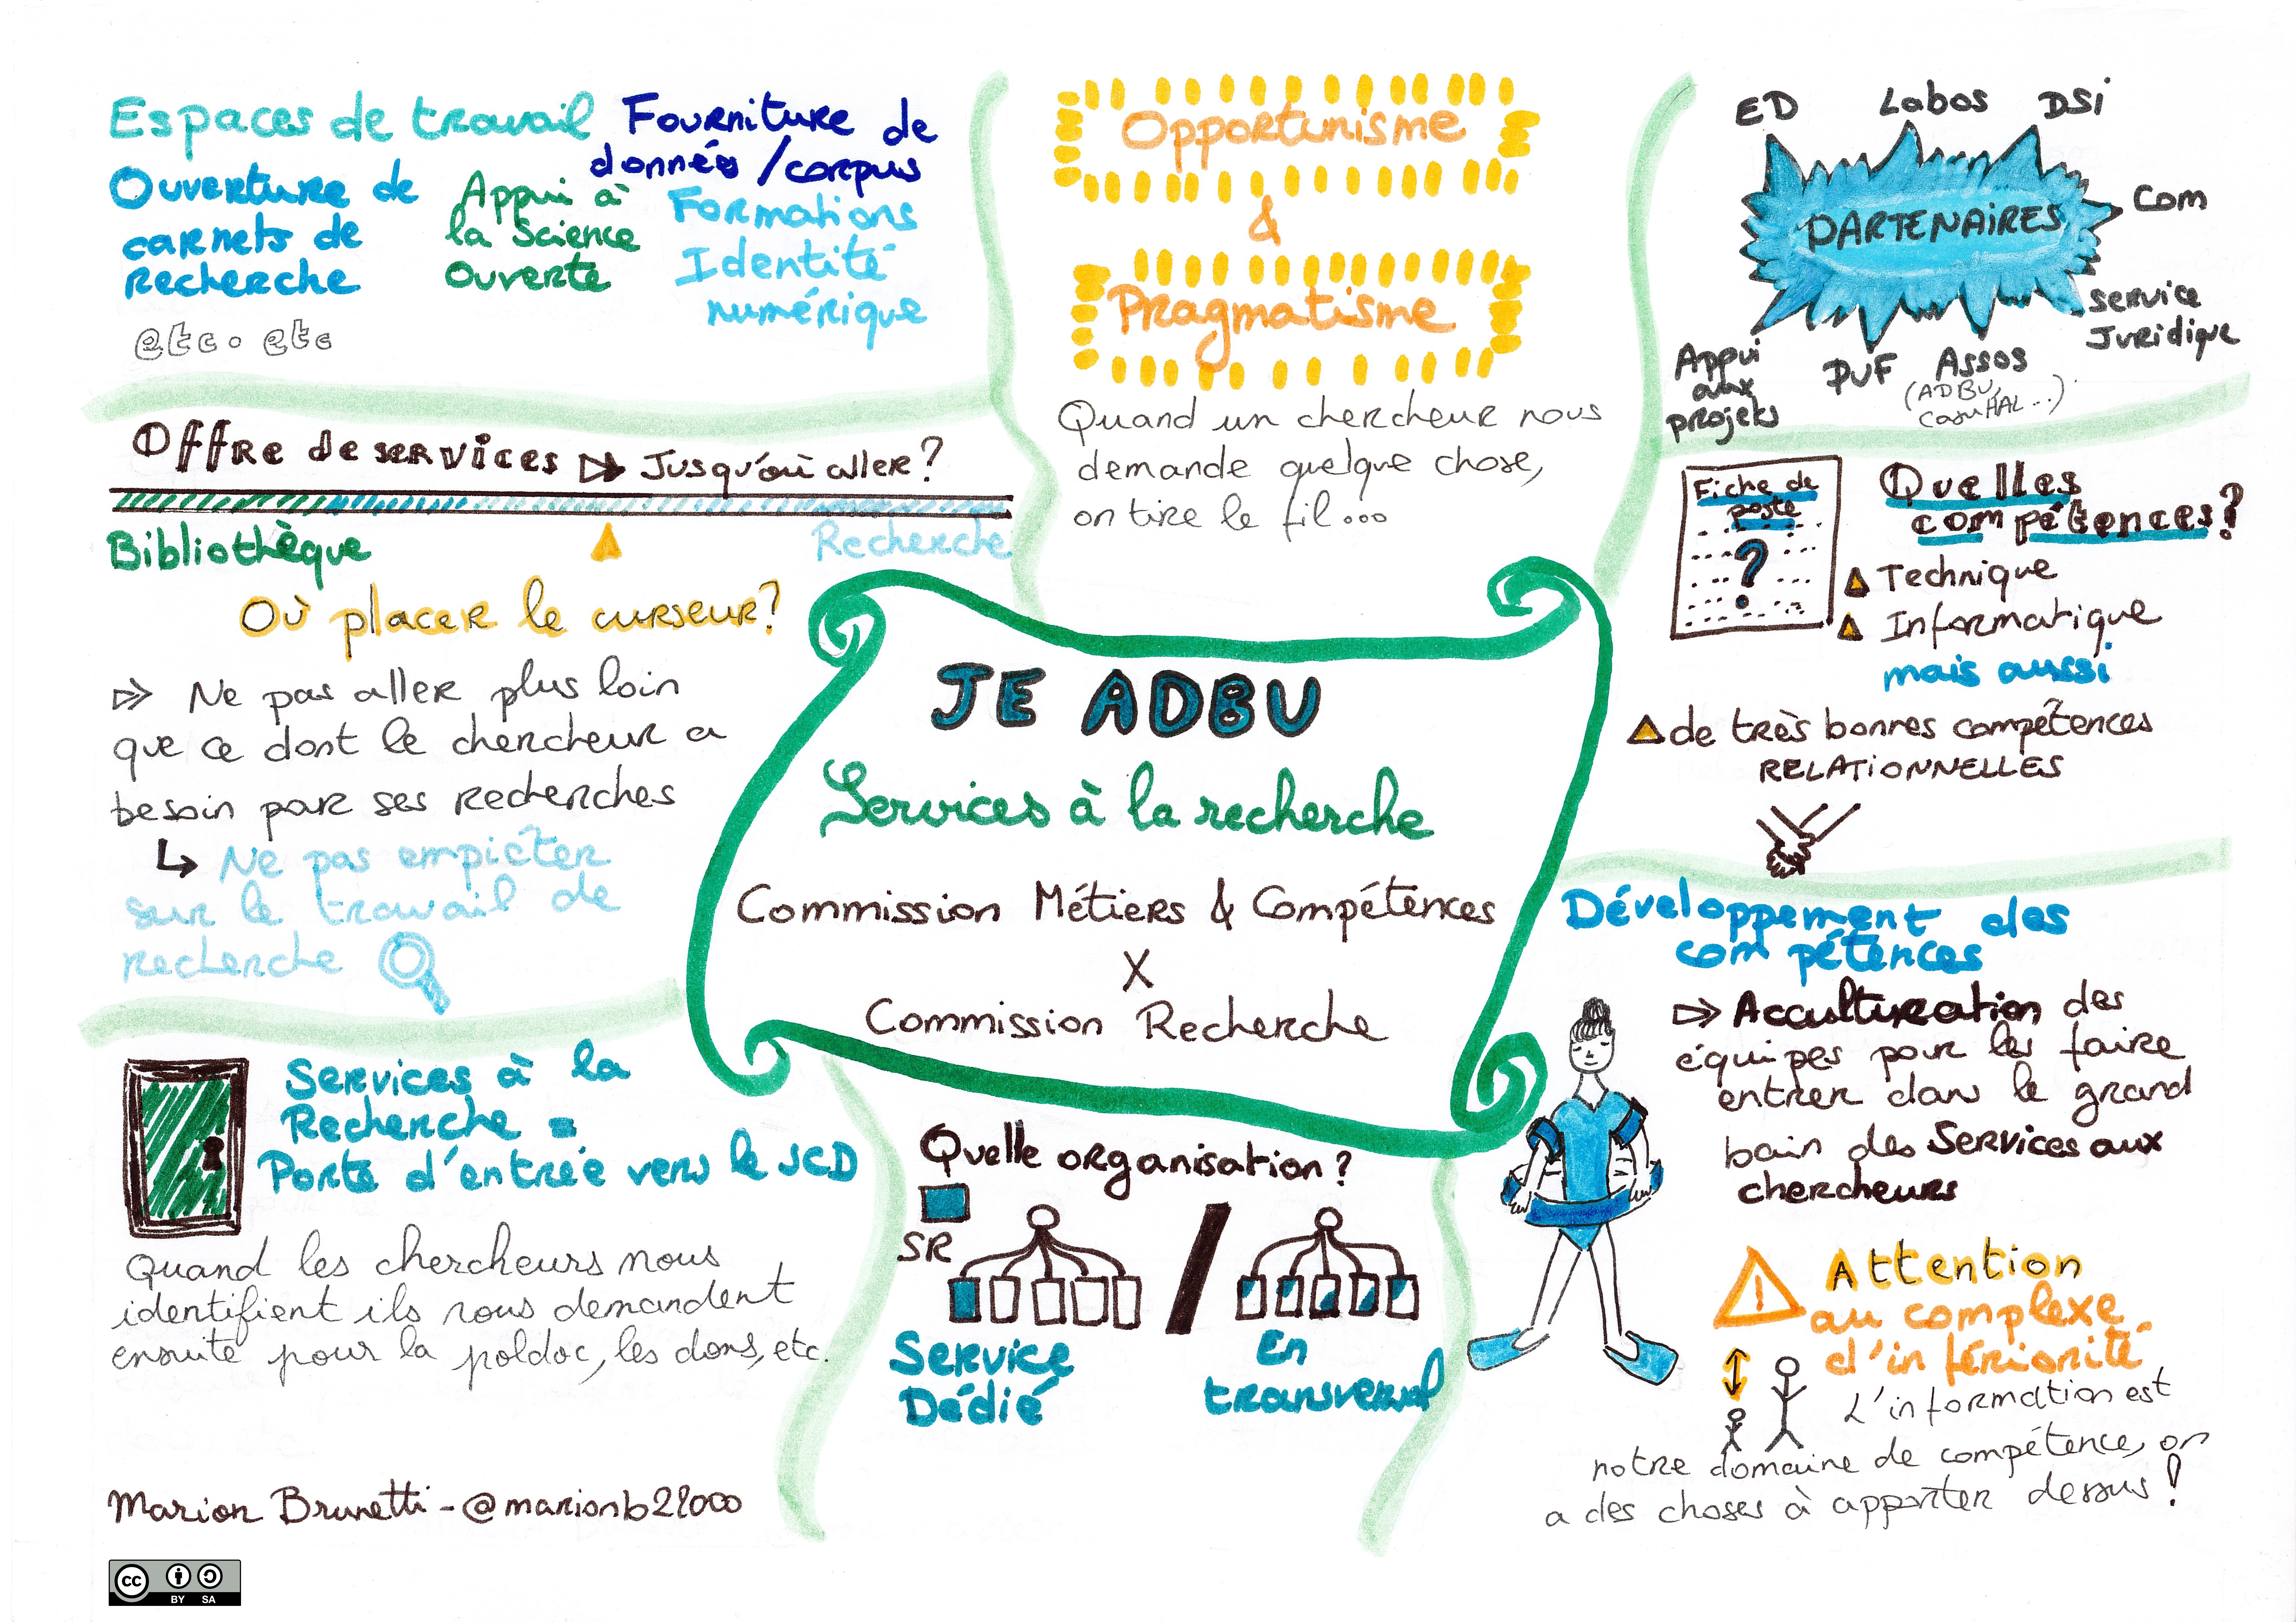 Espaces de travail
Fourniture de
données / corpus
Ouverture de
carnets de
recherche
Appui à
la Science
Ouverte
Formations
Identité
numérique
etc. etc
Opportunisme
&
Pragmatisme
Quand un chercheur nous
demande quelque chose,
on tire le fil...
ED
Labos
DSi
PARTENAIRES
Com
Service
Juridique
Appui
aux
projets
PUF
Assos
(ADBU,
CasuHAL...)
Offre de services Jusqu'où aller?
Bibliothèque
Recherche
Où placer le curseur?
Ne pas aller plus loin
que ce dont le chercheur a
besoin par ses recherches
Ne pas empiéter
sur le travail de
recherche
Fiche de
poste
?
Quelles
compétences?
Technique
Informatique
mais aussi
de très bonnes compétences
RELATIONNELLES
JE ADBU
Services à la recherche
Commission Métiers & Compétences
X
Commission Recherche
Services à la
Recherche =
Porte d'entrée vers le SCD
Quand les chercheurs nous
identifient ils nous demandent
ensuite pour la poldoc, les dons, etc.
Quelle organisation?
SR
/
Service
Dédié
En
transversal
Développement des
compétences
Acculturation des
équipes pour les faire
entrer dans le grand
bain des Services aux
chercheurs
!
Attention
au complexe
d'infériorité
L'information est
notre domaine de compétence, on
a des choses à apporter dessus!
Marion Brunetti - @marionb21000
cc
BY SA